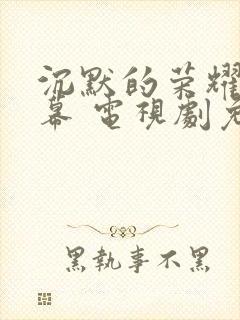 沉默的荣耀
幕 電視劇免
黑執事不黑